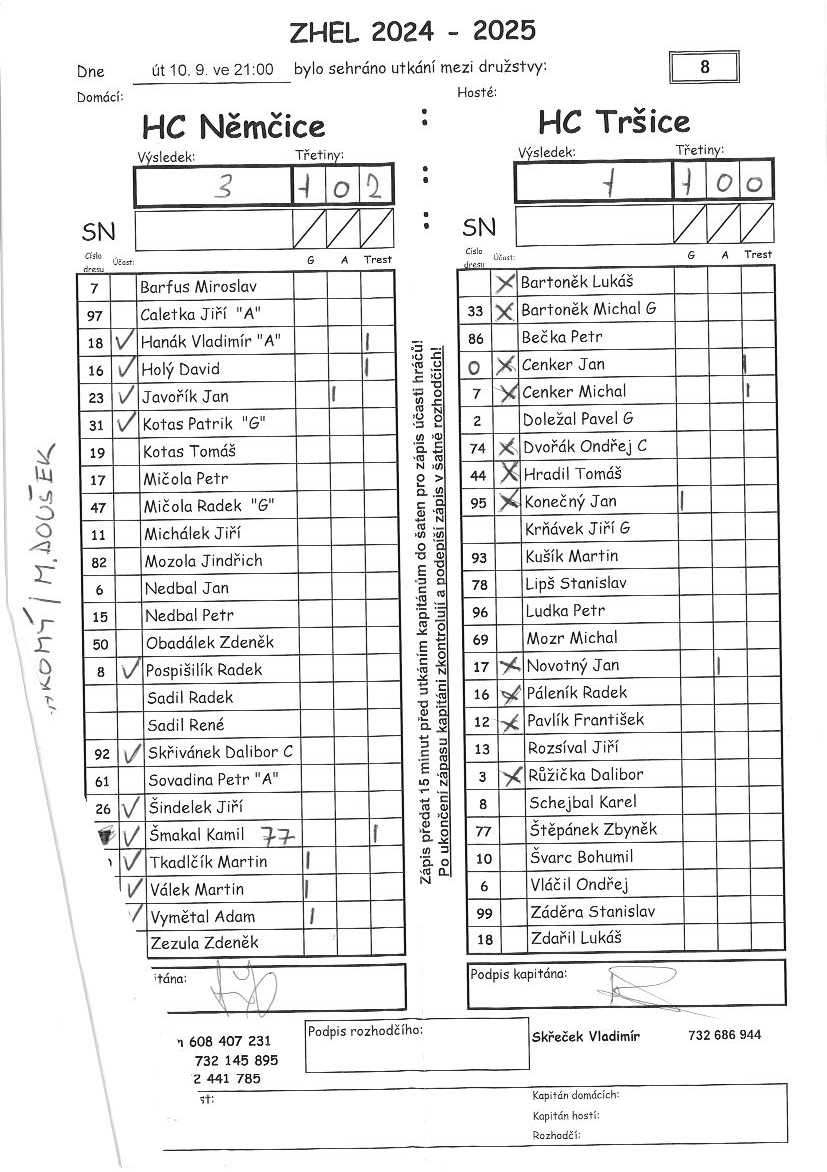 ZHEL 2024 - 2025
Dne út 10. 9. ve 21:00 bylo sehráno utkání mezi družstvy: 8
Domácí: Hosté:
HC Němčice : HC Tršice
Výsledek: Třetiny: Výsledek: Třetiny:
3 1 0 2 : 1 1 0 0
SN : SN
Číslo dresu Účast: G A Trest Číslo dresu Účast: G A Trest
7 Barfus Miroslav
97 Caletka Jiří "A"
18 ✓ Hanák Vladimír "A" |
16 ✓ Holý David |
23 ✓ Javořík Jan |
31 ✓ Kotas Patrik "G"
19 Kotas Tomáš
17 Mičola Petr
47 Mičola Radek "G"
11 Michálek Jiří
82 Mozola Jindřich
6 Nedbal Jan
15 Nedbal Petr
50 Obadálek Zdeněk
8 ✓ Pospišilík Radek
Sadil Radek
Sadil René
92 ✓ Skřivánek Dalibor C
61 Sovadina Petr "A"
26 ✓ Šindelek Jiří
✓ Šmakal Kamil 77 |
✓ Tkadlčík Martin |
✓ Válek Martin |
✓ Vymětal Adam |
Zezula Zdeněk
X Bartoněk Lukáš
33 X Bartoněk Michal G
86 Bečka Petr
0 X Cenker Jan |
7 X Cenker Michal |
2 Doležal Pavel G
74 X Dvořák Ondřej C
44 X Hradil Tomáš
95 X Konečný Jan |
Krňávek Jiří G
93 Kušík Martin
78 Lipš Stanislav
96 Ludka Petr
69 Mozr Michal
17 X Novotný Jan |
16 X Páleník Radek
12 X Pavlík František
13 Rozsíval Jiří
3 X Růžička Dalibor
8 Schejbal Karel
77 Štěpánek Zbyněk
10 Švarc Bohumil
6 Vláčil Ondřej
99 Záděra Stanislav
18 Zdařil Lukáš
Zápis předat 15 minut před utkáním kapitánům do šaten pro zápis účasti hráčů!
Po ukončení zápasu kapitáni zkontrolují a podepíší zápis v šatně rozhodčích!
KOMÝ / M. DOUŠEK
itána: Podpis kapitána:
608 407 231 Podpis rozhodčího: Skřeček Vladimír 732 686 944
732 145 895
2 441 785
st: Kapitán domácích:
Kapitán hostí:
Rozhodčí: